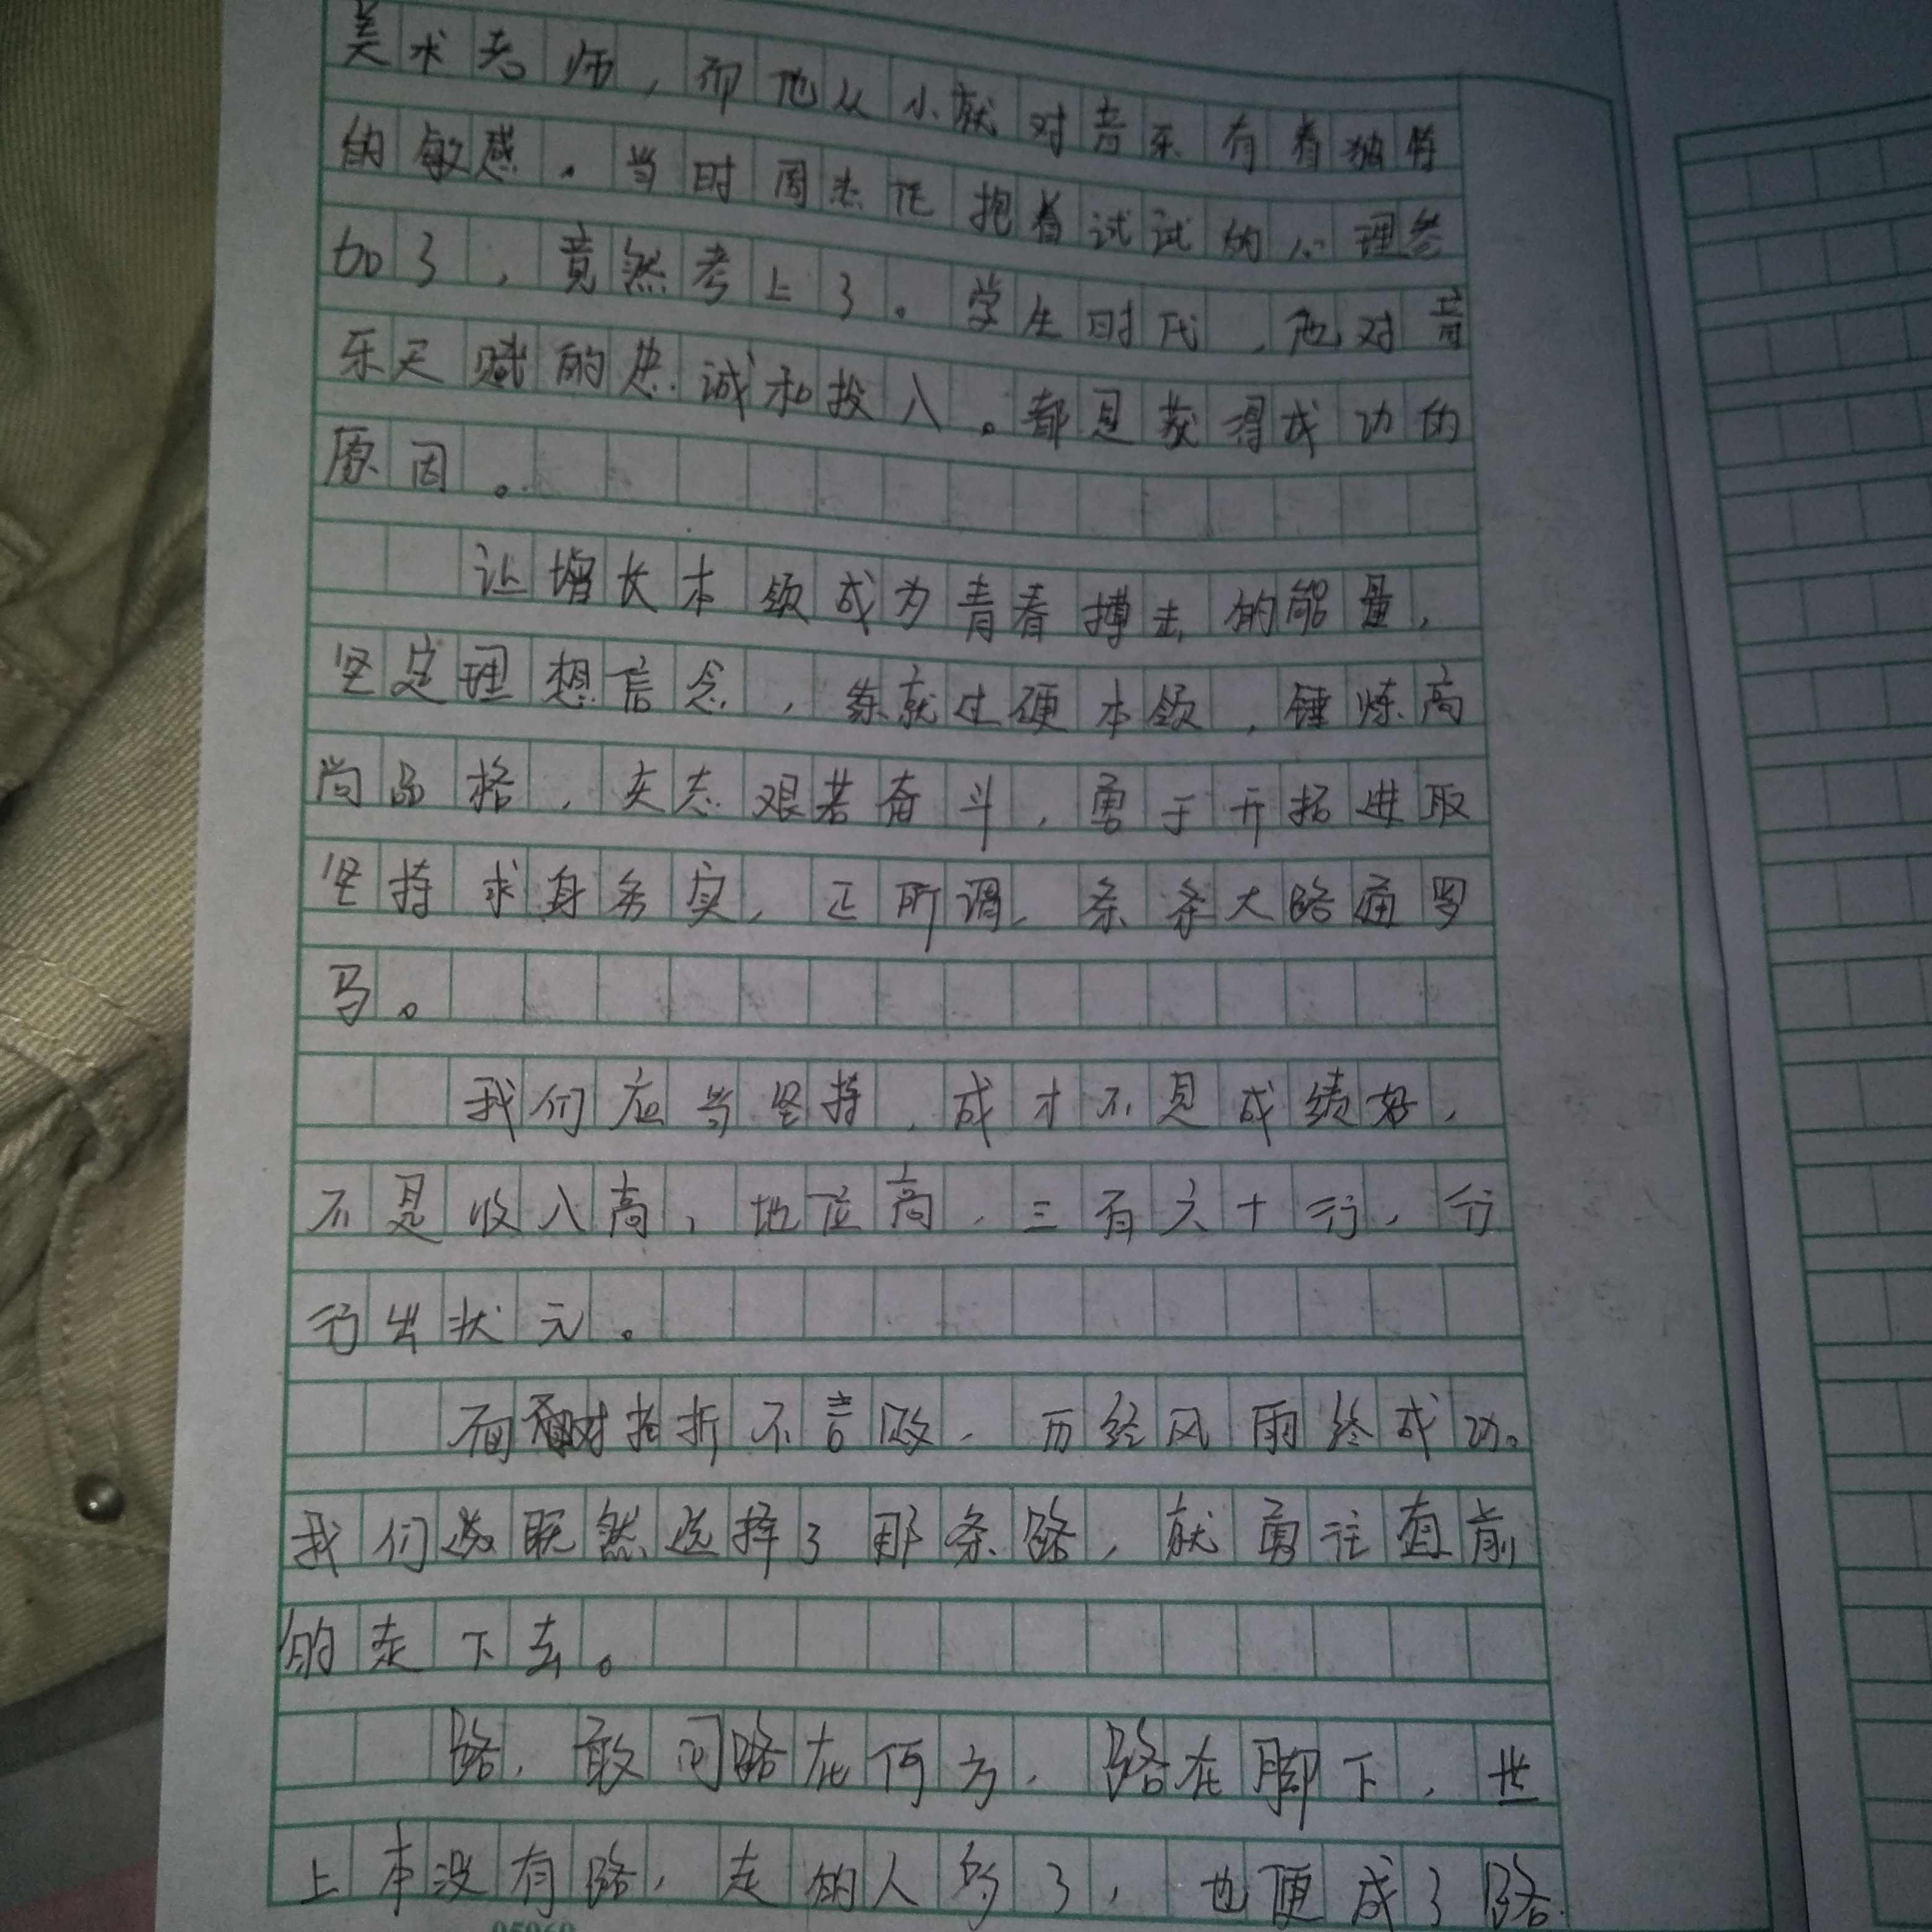 美术老师，而他从小就对音乐有着独特
的敏感。当时周杰伦抱着试试的心理参
加了，竟然考上了。学生时代，他对音
乐天赋的忠诚和投入。都是获得成功的
原因。
让增长本领成为青春搏击的能量，
坚定理想信念，练就过硬本领，锤炼高
尚品格，矢志艰苦奋斗，勇于开拓进取
坚持求身务实，正所谓，条条大路通罗
马。
我们应当坚持，成才不是成绩好，
不是收入高，地位高，三百六十行，行
行出状元。
面对挫折不言败，历经风雨终成功。
我们既然选择了那条路，就勇往直前
的走下去。
路，敢问路在何方，路在脚下，世
上本没有路，走的人多了，也便成了路